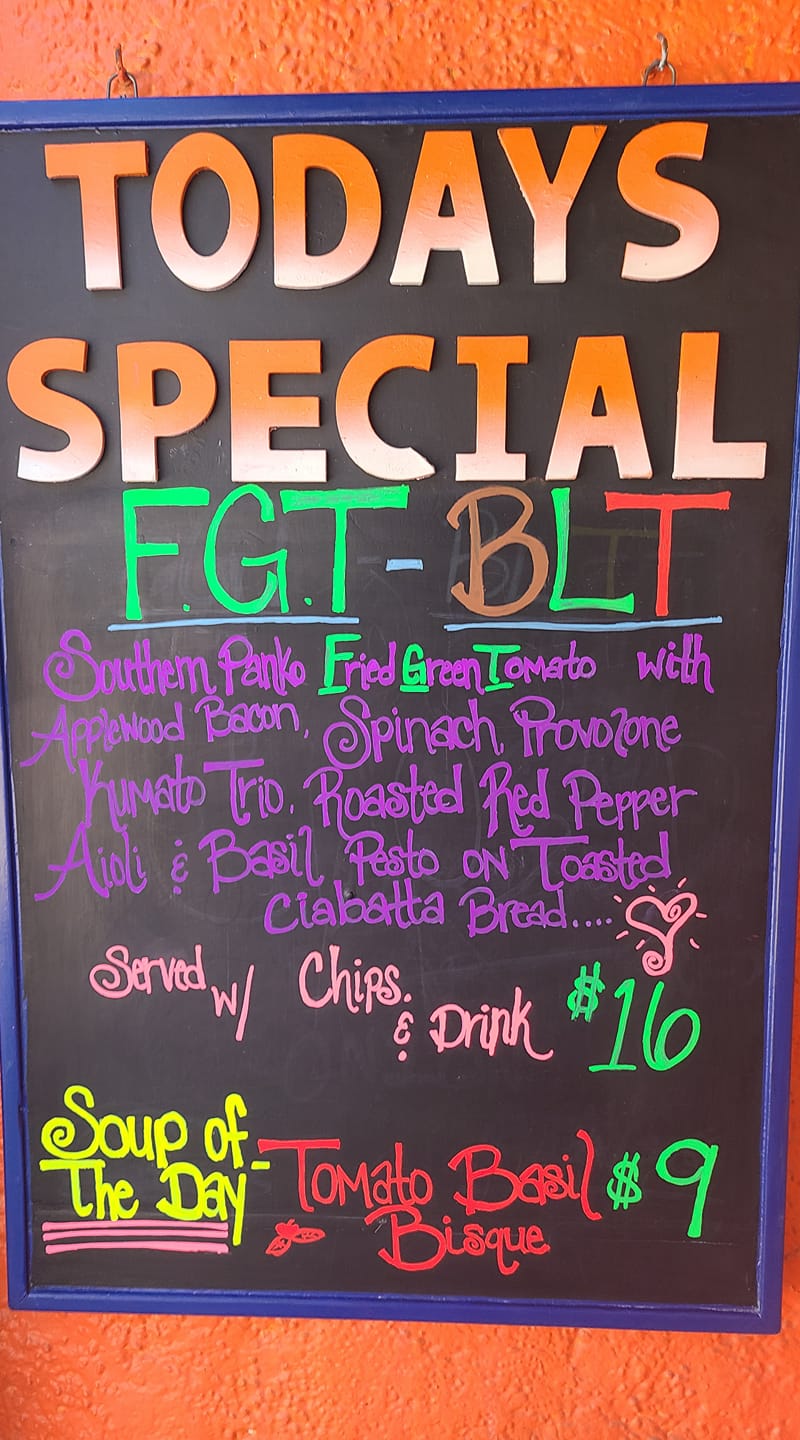 TODAYS
SPECIAL
F.G.T - BLT
Southern Panko Fried Green Tomato with
Applewood Bacon, Spinach, Provolone
Kumato Trio, Roasted Red Pepper
Aioli & Basil Pesto on Toasted
Ciabatta Bread....
Served w/ Chips. & Drink $16
Soup of The Day - Tomato Basil Bisque $9